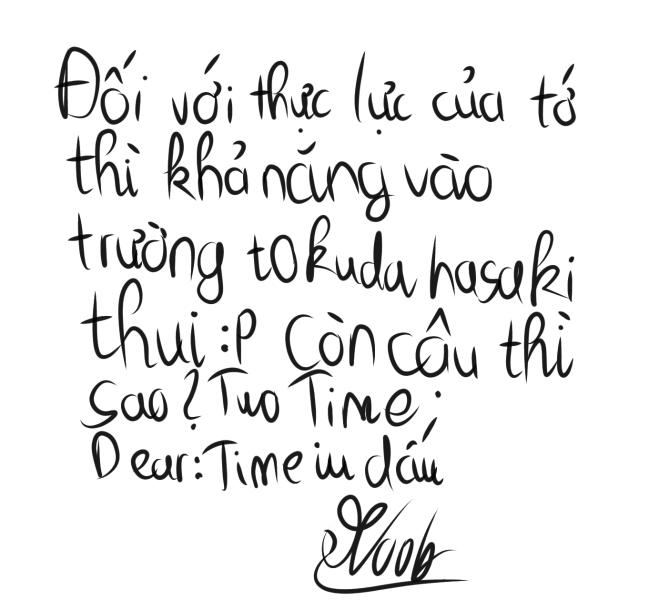 Đối với thực lực của tớ
thì khả năng vào
trường tokuda hasaki
thui :P Còn câu thì
sao? Two Time;
Dear: Time iu dấu
Noob